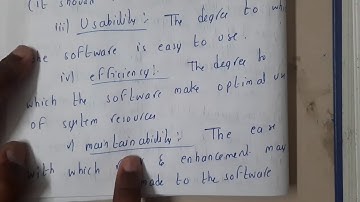 (it should
iii) Usability :- The degree to whi
the software is easy to use.
iv) efficiency :- The degree to
which the software make optimal us
of system resources
v) maintainability :- The ease
with which & enhancement may
made to the software